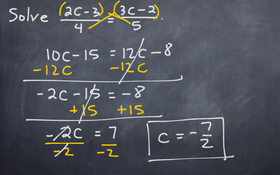 Solve (2C-3)/4 = (3C-2)/5
10C-15 = 12C-8
-12C -12C
-2C-15 = -8
+15 +15
-2C/-2 = 7/-2
C = -7/2